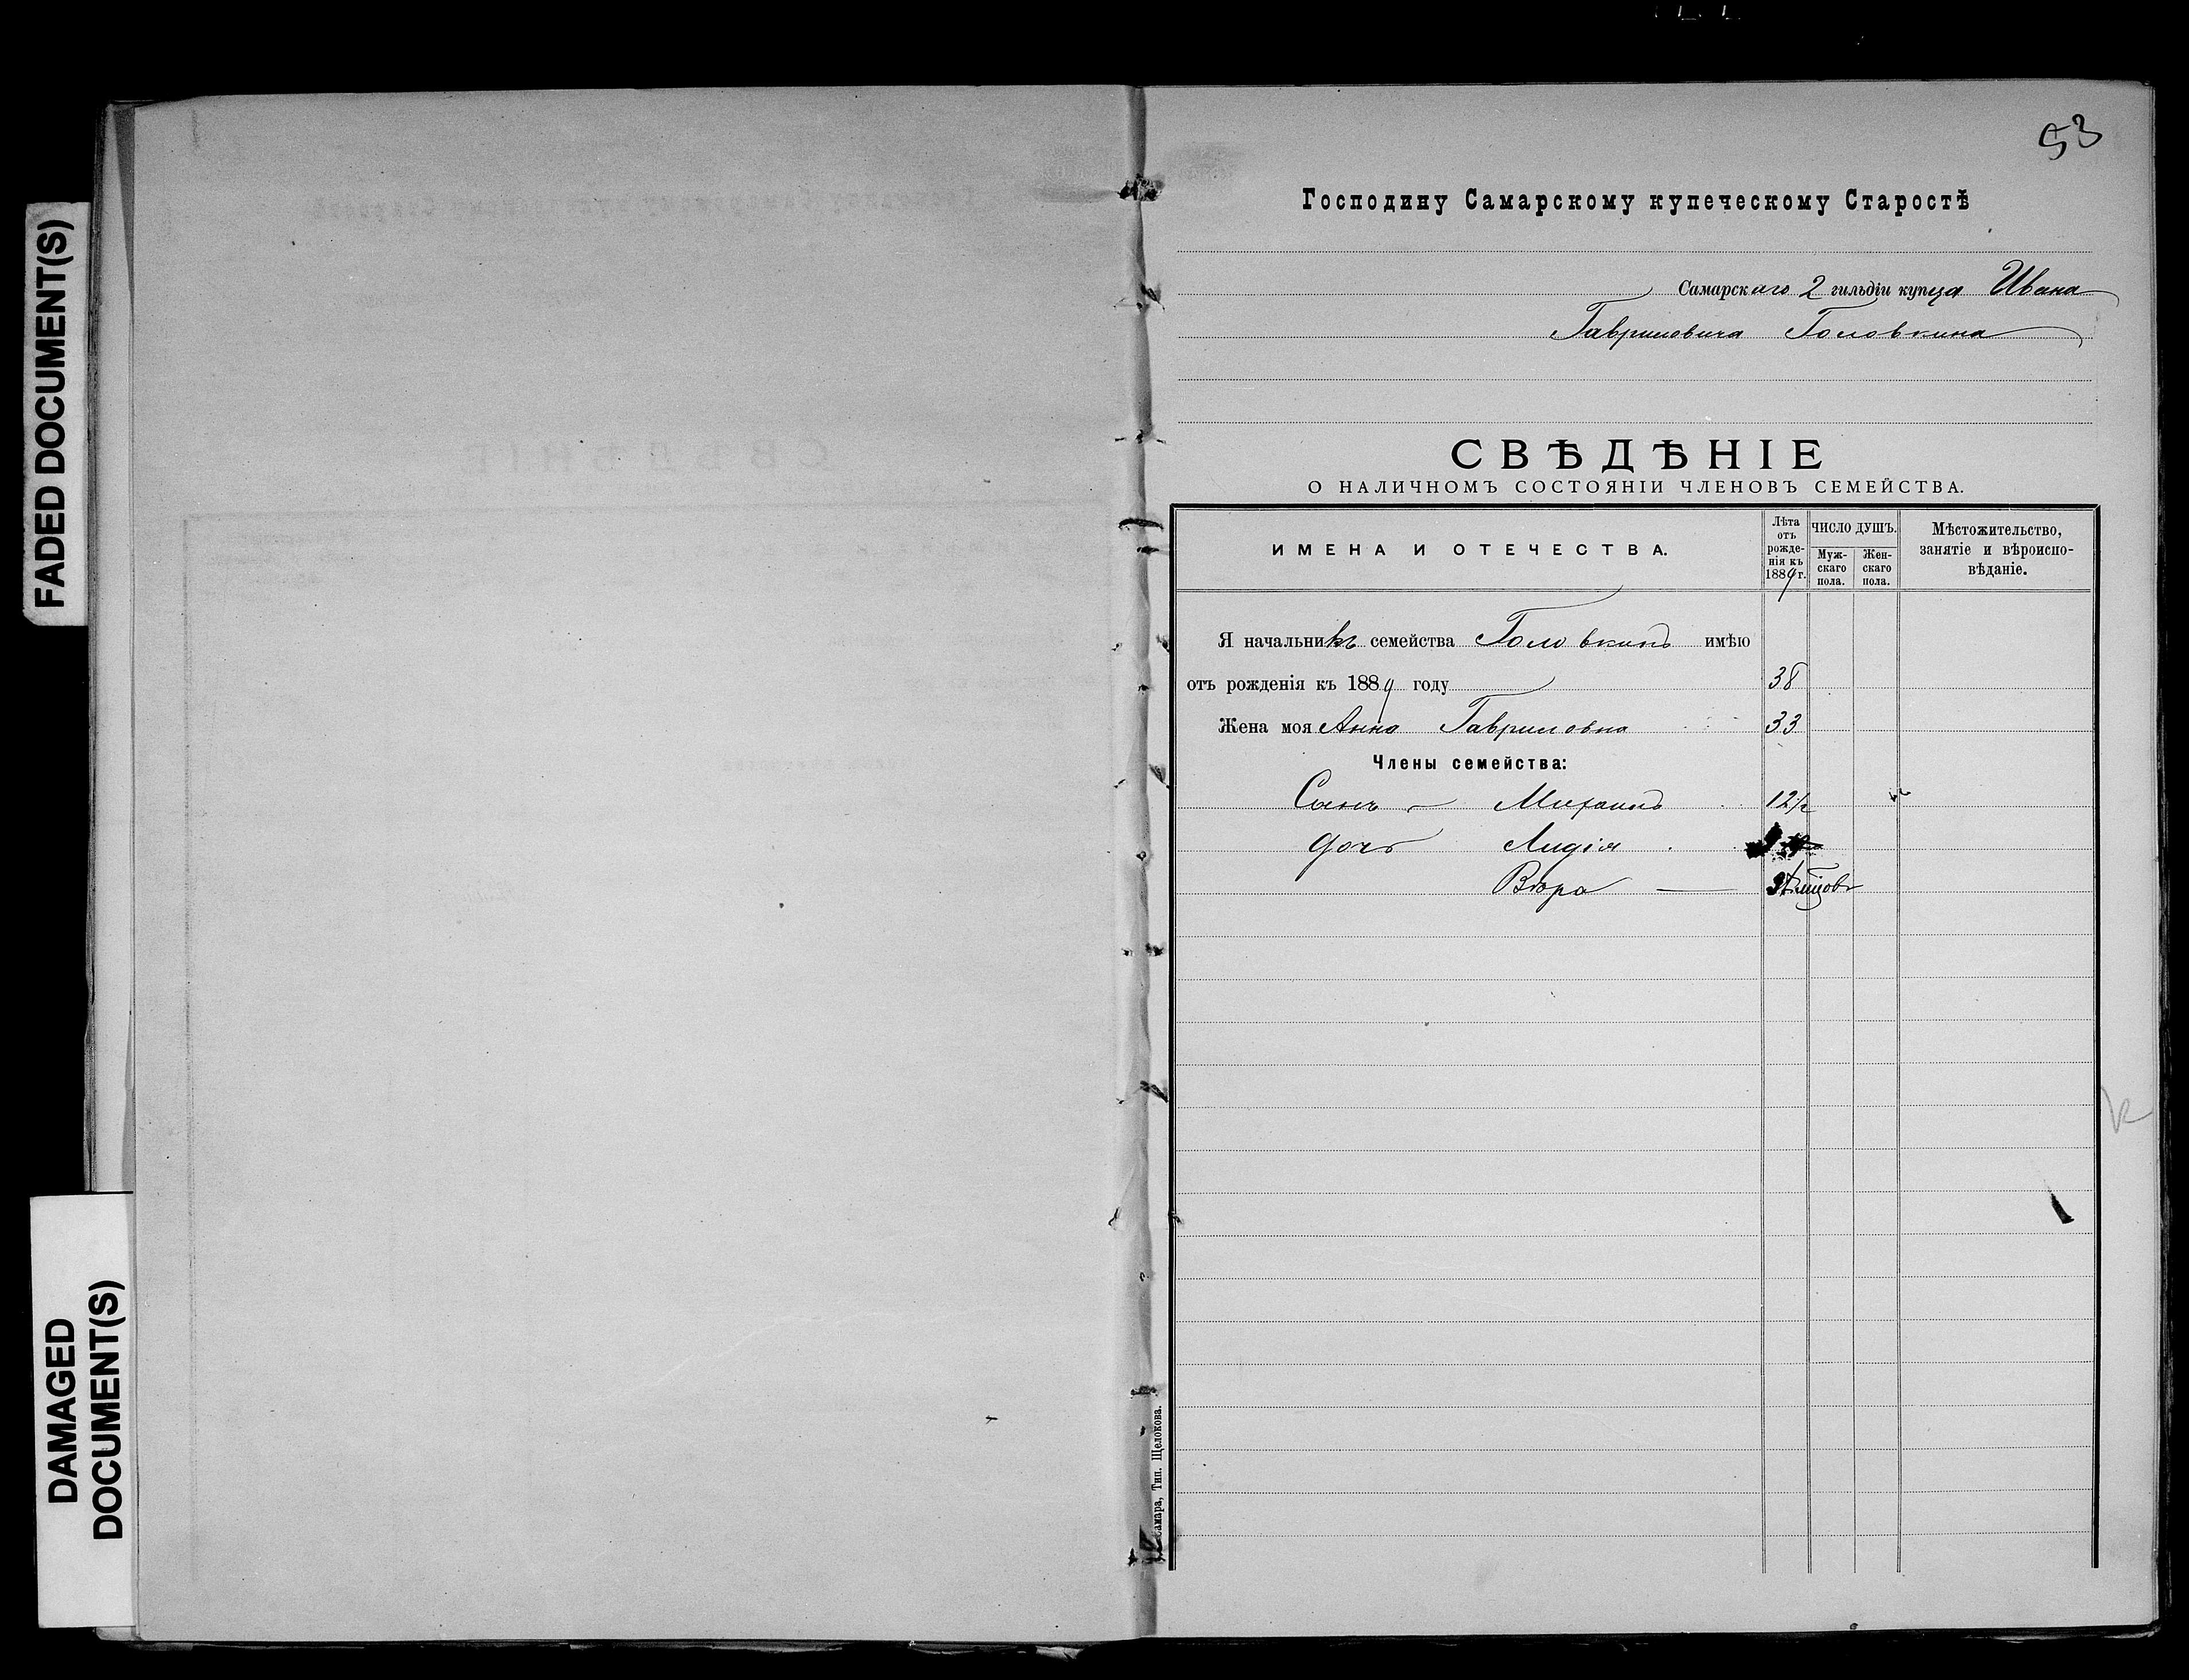 FADED DOCUMENT(S)
DAMAGED
DOCUMENT(S)
53
Господину Самарскому купеческому Старостѣ
Самарскаго 2 гильдіи купца Ивана
Гавриловича Головкина
СВѢДѢНІЕ
О НАЛИЧНОМЪ СОСТОЯНІИ ЧЛЕНОВЪ СЕМЕЙСТВА.
ИМЕНА И ОТЕЧЕСТВА.
Лѣта
отъ
рожде-
нія къ
1889 г.
ЧИСЛО ДУШЪ.
Муж-
скаго
пола.
Жен-
скаго
пола.
Мѣстожительство,
занятіе и вѣроиспо-
вѣданіе.
Я начальникъ семейства Головкинъ имѣю
отъ рожденія къ 1889 году 38
Жена моя Анна Гавриловна 33
Члены семейства:
Сынъ — Михаилъ 12 1/2
Дочь Лидія
Вѣра —
Самара, Тип. Щелокова.